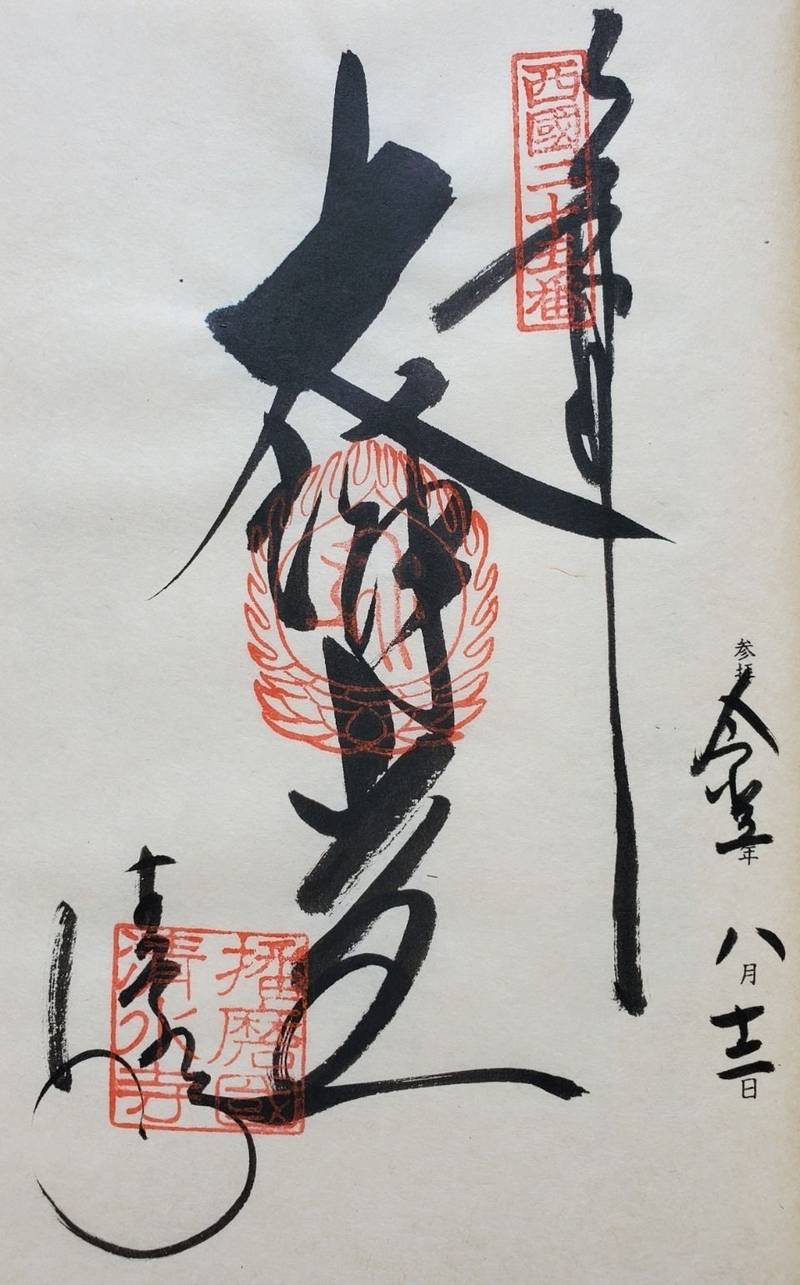 奉拝
西國二十五番
大講堂
播磨國
清水寺
清水寺
参拝 令和五年 八月 日